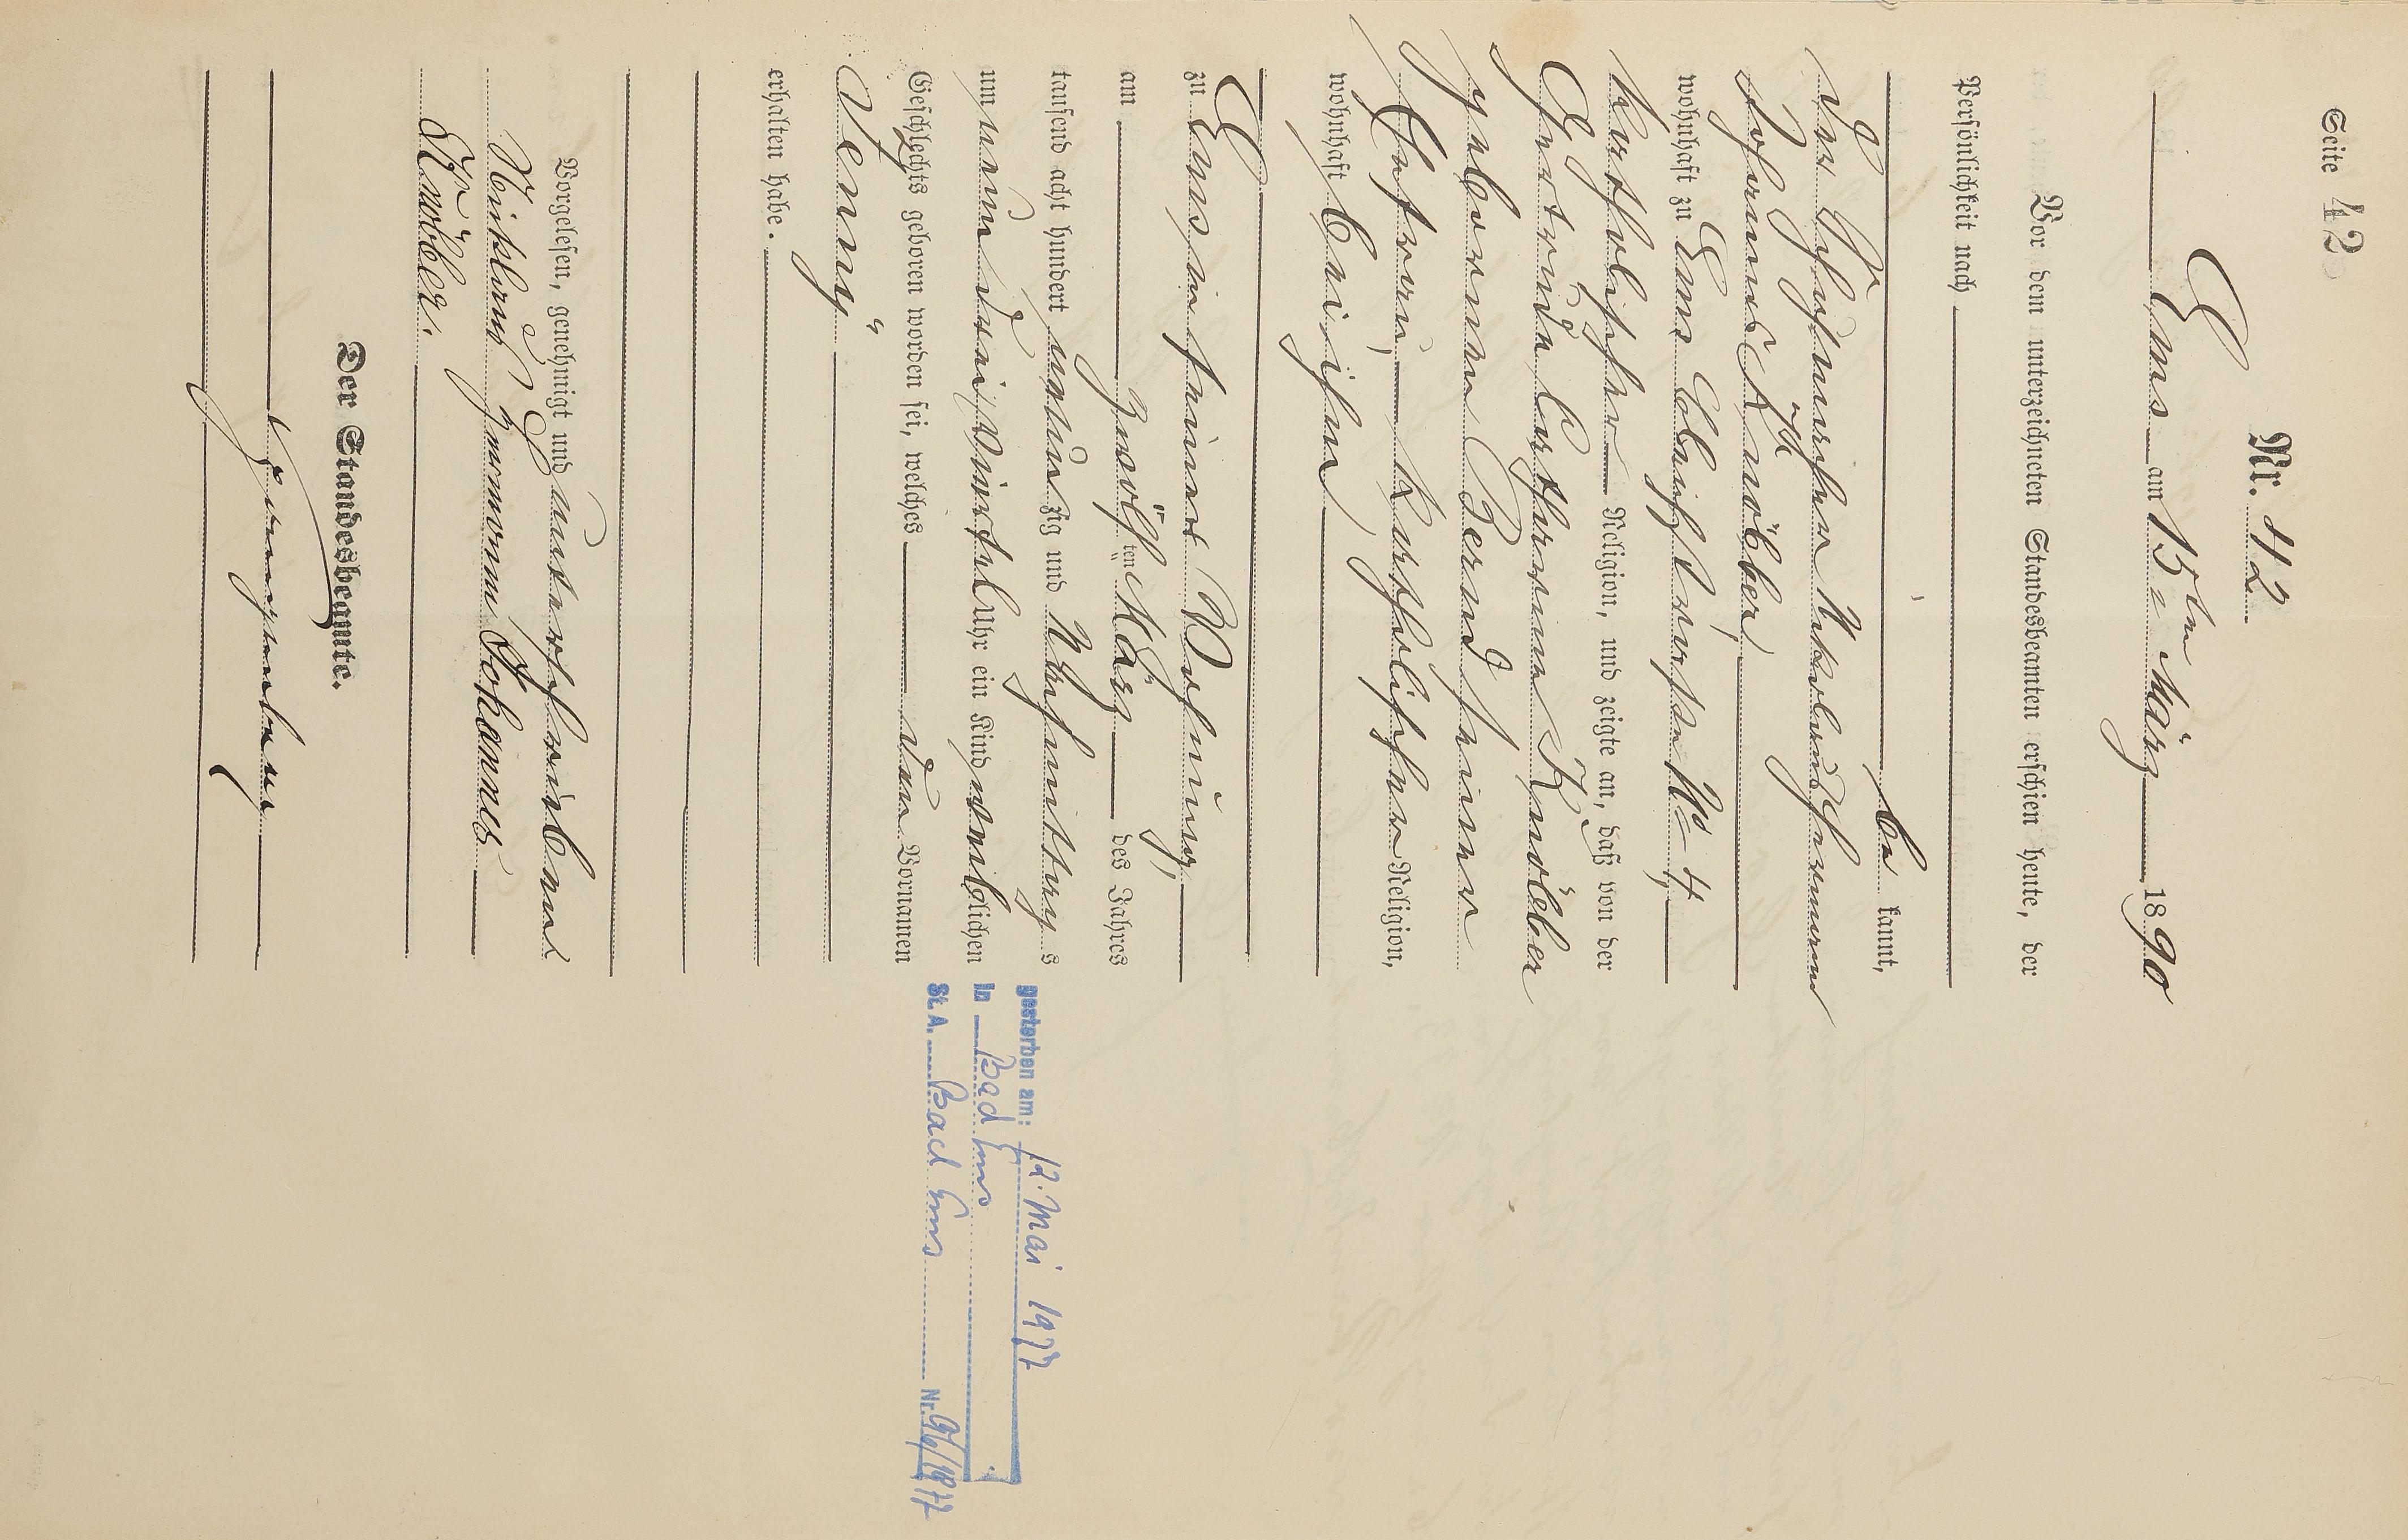 Seite 42
Nr. 42
Ems am 15ten März 1890
Vor dem unterzeichneten Standesbeamten erschien heute, der
Persönlichkeit nach
be kannt,
der
Johannes Knöbber,
wohnhaft zu Ems Bleichstraße No 4,
katholischer Religion, und zeigte an, daß von der
Gertrude Catharina Knöbber
geborenen Bernd seiner
Ehefrau, katholischer Religion,
wohnhaft bei ihm,
zu Ems in seiner Wohnung,
am zwölf ten März des Jahres
tausend acht hundert neun zig und Nachmittag s
um neun drei Viertel Uhr ein Kind weib lichen
Geschlechts geboren worden sei, welches den Vornamen
„Jenny“
erhalten habe.
Vorgelesen, genehmigt und unterschrieben
Nikolaus Hermann Johannes
Knöbber.
Der Standesbeamte.
gestorben am: 12. Mai 1977
in Bad Ems
St. A. Bad Ems Nr. 96/1977